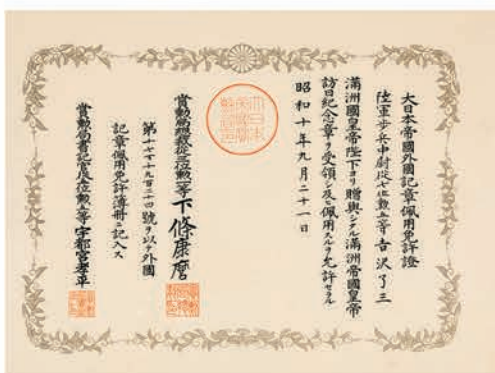 大日本帝國外國記章佩用免許證
陸軍步兵中尉從七位勲五等吉沢了三
滿洲國皇帝陛下ヨリ贈與シタル滿洲帝國皇帝
訪日紀念章ヲ受領シ及ヒ佩用スルヲ允許セラル
昭和十年九月二十一日
賞勲局總裁從三位勲二等下條康麿
第十七万十九百二十四號ヲ以テ外國
記章佩用免許簿册ニ記入ス
賞勲局書記官正六位勲五等宇都宮孝平